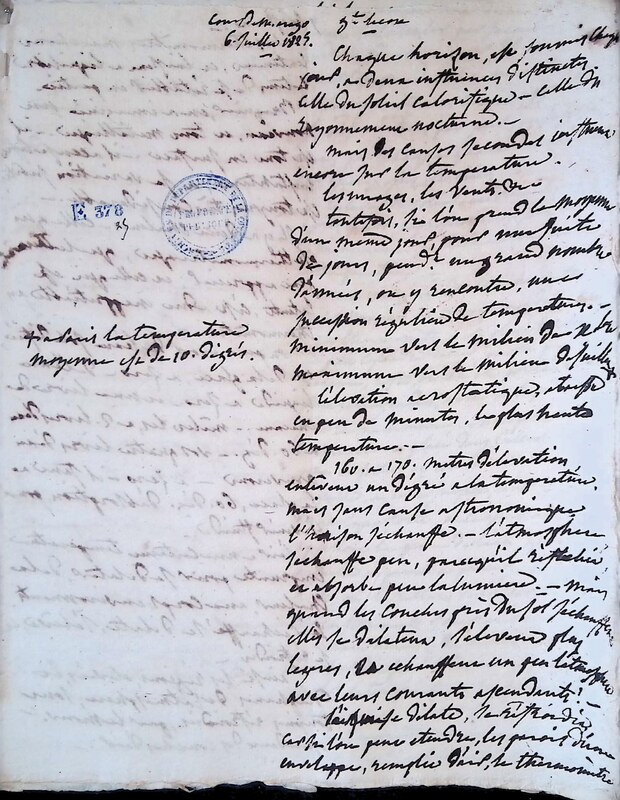 Cours de M. arago 9e. lecon
6. juillet 1825.
Chaque horizon, est soumis Chaque
jour, a deux influences distinctes
celle du soleil calorifique - celle du
rayonnement nocturne. -
mais des causes secondes influent
encore sur la temperature.
les nuages, les vents. &c
toutefois, si l'on prend la moyenne
d'un même jour, pour une suite
de jours, pend.t un grand nombre
d'années, on y rencontre, une
régulière de temperature. -
minimum vers le milieu de
maximum vers le milieu de juillet +
l'élévation aerostatique,
en peu de minutes, la plus haute
temperature. -
160. a 170. metres d'élévation
enlevent un dégré a la temperature.
mais sans cause astronomique
l'horison s'échauffe. - l'atmosphere
s'échauffe peu, parcequ'il réfléchit
et absorbe peu la lumiere. - Mais
quand les Couches près du sol s'échauffent
elles se dilatent, s'élevent plus
legeres, echauffent un peu l'atmosphere
avec leurs courants ascendants. -
l'air se dilate, se réfroidit
car si l'on peut etendre, les parois d'une
enveloppe, remplie d'air, le thermomètre
E 378
+ a Paris la temperature
moyenne est de 10. dégrés.